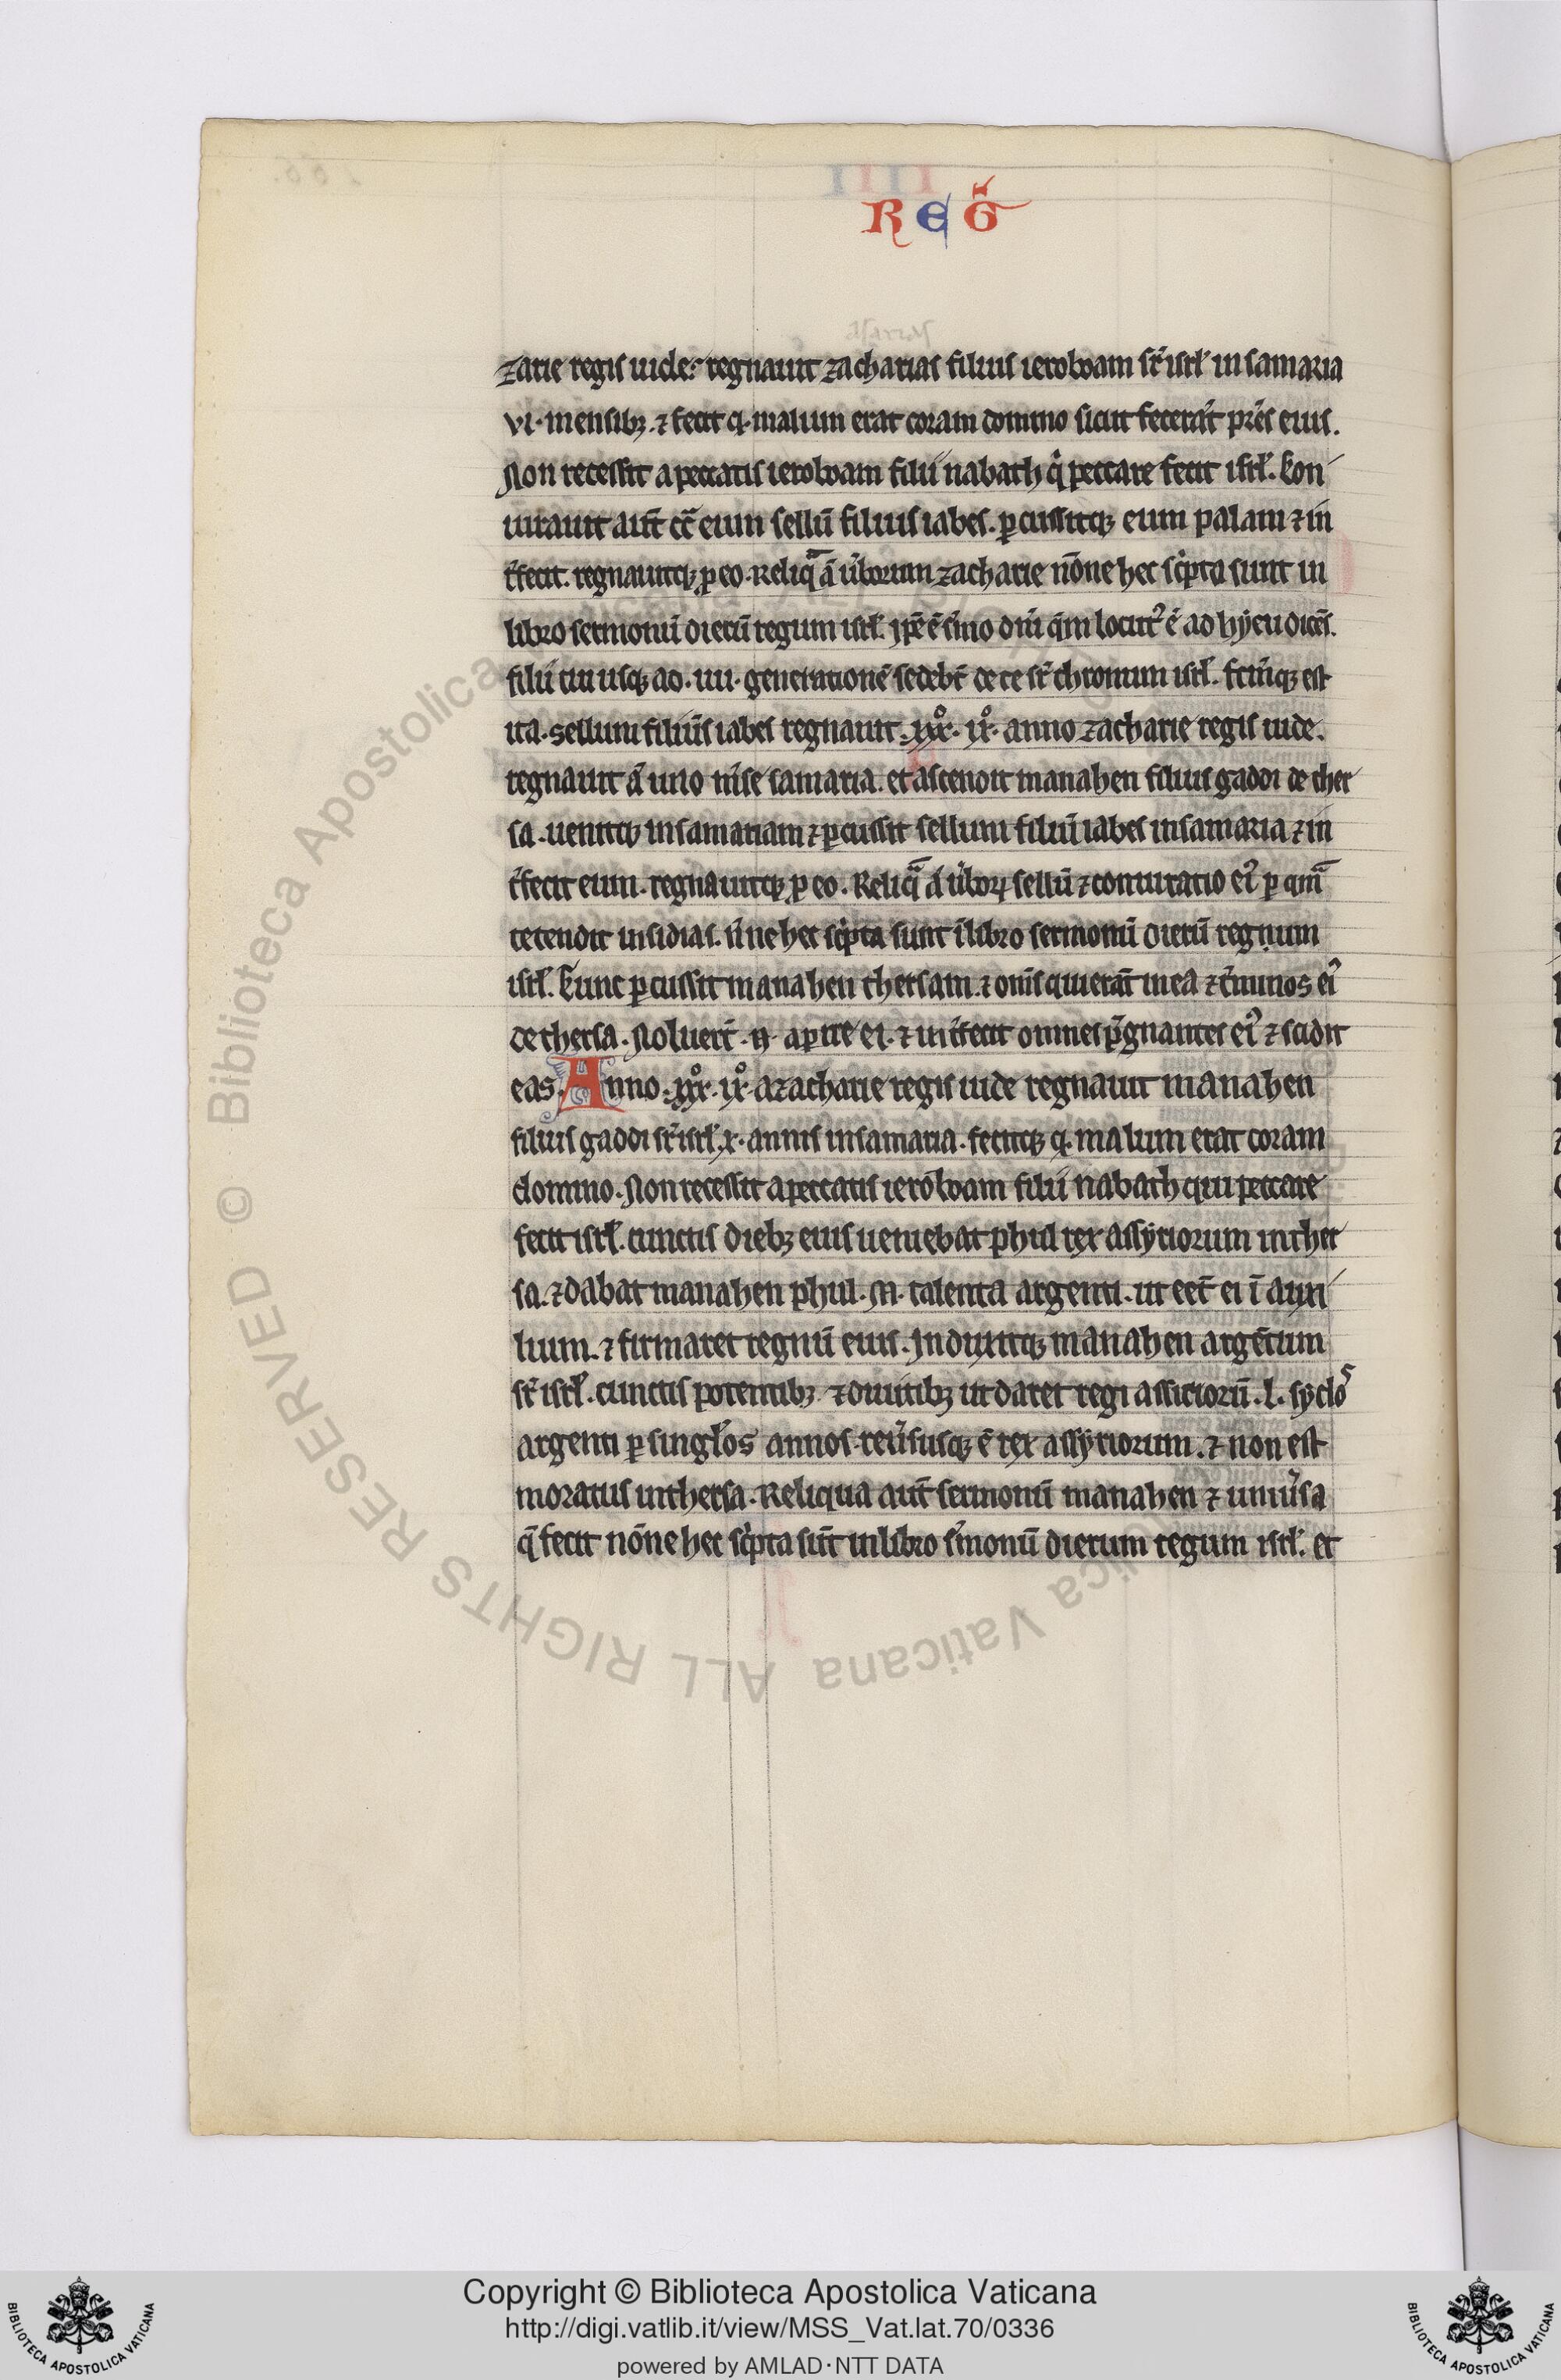 REG̃
zarie regis iude. regnauit zacharias filius ieroboam sr̃ isrł in samaria
vi. mensibꝫ. ⁊ fecit q. malum erat coram domino sicut fecerãt pr̃es eius.
Non recessit a peccatis ieroboam filii nabath q̇ peccare fecit isrł. Con
iurauit aut̃ cc̃a eum sellũ filius iabes. ꝑcussitqꝫ eum palam ⁊ in
t̃fecit. regnauitqꝫ ꝓ eo. Reliq̃ a᷑ u̓borum zacharie nõne hec sc̓pta sunt in
libro sermonũ dierũ regum isrł. Ip̃e ẽ s̓mo dñi q̃m locutꝰ ẽ ad hyeu dicẽs.
filii tui usqꝫ ad .iiii. generationẽ sedebt̃ de te sr̃ thronum isrł. fctm̃qꝫ est
ita. Sellum filius iabes regnauit .xxx̊.ix̊. anno zacharie regis iude.
regnauit a᷑ uno m̃se samaria. et ascendit manahen filius gaddi de ther
sa. uenitqꝫ in samariam ⁊ ꝑcussit sellum filiũ iabes in samaria ⁊ in
t̃fecit eum. regnauitqꝫ ꝓ eo. Reliq̃ a᷑ u̓boꝝ sellũ ⁊ coniuratio eiꝰ ꝑ qm̃
tetendit insidias. ñne hec sc̓pta sunt ĩ libro sermonũ dierũ regnum
isrł. Tunc ꝑcussit manahen thersam. ⁊ om̃s qui erãt in ea ⁊ t̃minos eiꝰ
de thersa. Noluert̃ .n. aperire ei. ⁊ int̃fecit omnes p̃gnantes eiꝰ ⁊ scidit
eas. Anno .xxx̊.ix̊. azacharie regis iude regnauit manahen
filius gaddi sr̃ isrł .x. annis in samaria. fecitqꝫ q. malum erat coram
domino. Non recessit a peccatis ieroboam filii nabath qui peccare
fecit isrł. cunctis diebꝫ eius ueniebat phul rex assyriorum in ther
sa. ⁊ dabat manahen phul .M. talenta argenti. ut eet̃ ei ĩ auxi
lium. ⁊ firmaret regnũ eius. Indixitqꝫ manahen argẽtum
sr̃ isrł. cunctis potentibꝫ ⁊ diuitibꝫ ut daret regi assiriorũ .l. syclos
argenti ꝑ singłos annos. reu̓susqꝫ ẽ rex assyriorum. ⁊ non est
moratus in thersa. Reliqua aut̃ sermonũ manahen ⁊ uniu̓sa
q̃ fecit nõne hec sc̓pta sũt in libro s̓monũ dierum regum isrł. et
Copyright © Biblioteca Apostolica Vaticana
http://digi.vatlib.it/view/MSS_Vat.lat.70/0336
powered by AMLAD·NTT DATA
BIBLIOTECA APOSTOLICA VATICANA
BIBLIOTECA APOSTOLICA VATICANA
© Biblioteca Apostolica Vaticana ALL RIGHTS RESERVED